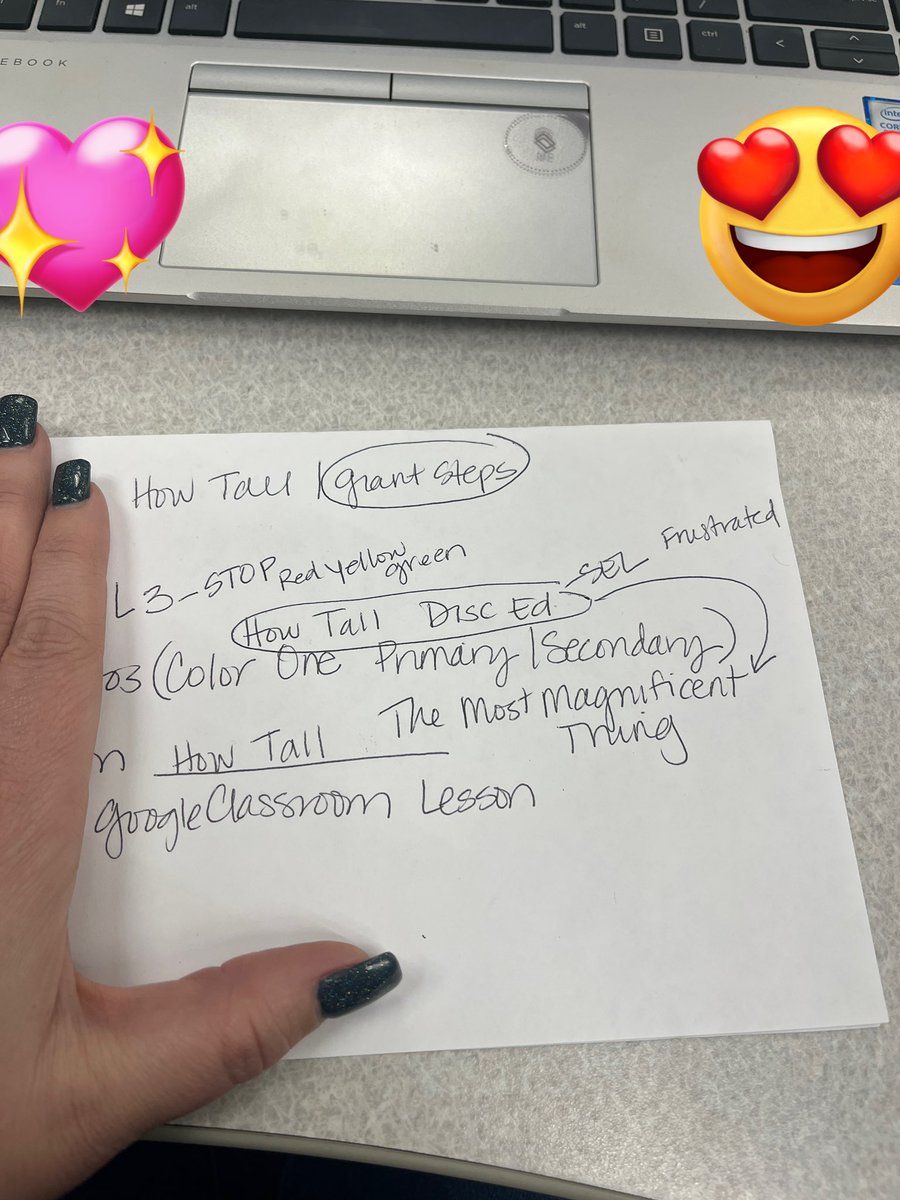 fn
alt
alt
ctrl
EBOOK
How Tall / giant steps
L3-STOP Red Yellow green
SEL Frustrated
How Tall Disc Ed.
03 (Color One Primary / Secondary)
The Most Magnificent Thing
n How Tall
Google Classroom Lesson